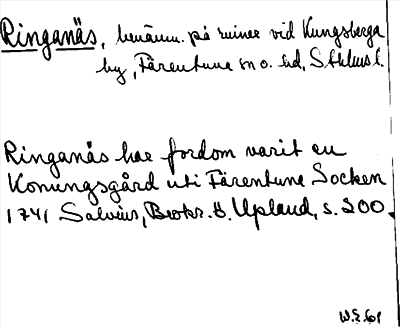 Ringanäs, benämn. på ruiner vid Kungsberga
by, Färentuna sn o. hd, Sthlms l.
Ringanäs har fordom varit en
Konungsgård uti Färentuna Socken
1741 Salvius, Beskr. ö. Upland, s. 200.
W.E. 61